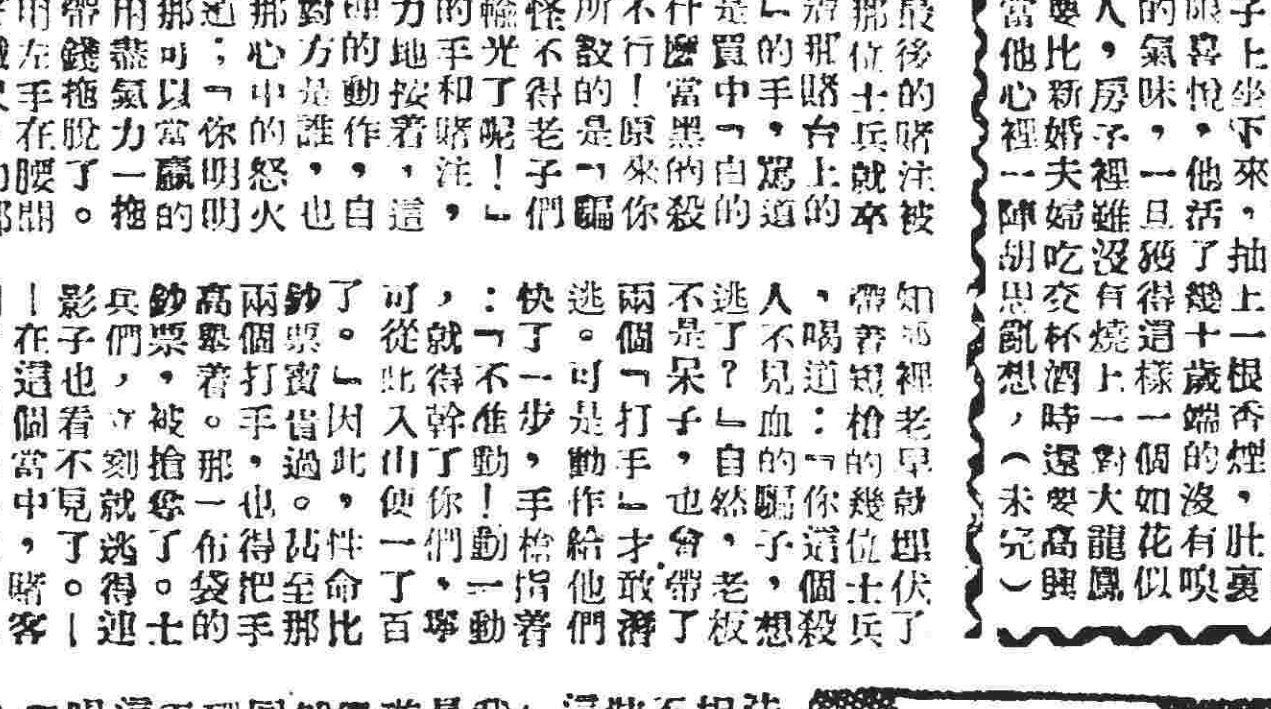 子上坐下來，抽上一根香煙，肚裏
眼喜悅，他活了幾十歲端的沒有嗅
的氣味，一旦獲得這樣一個如花似
人，房子裡雖沒有燒上一對大龍鳳
要比新婚夫婦吃交杯酒時還要高興
當他心裡一陣胡思亂想，（未完）
最後的賭注被
那位士兵就卒
那賭台上的
」的手，罵道
是買中「白的
什麼當黑的殺
不行！原來你
所說的是「騙
怪不得老子們
輸光了呢！」
的手和賭注，
力地按着，這
理的動作，自
對方是誰，也
那心中的怒火
；「你明明
那可以當贏的
用盡氣力一拖
帶錢拖脫了。
用左手在腰間
知那裡老早就埋伏了
帶着短槍的幾位士兵
，喝道：「你這個殺
人不見血的騙子，想
逃了？」自然，老板
不是呆子，也會帶了
兩個「打手」才敢濟
逃。可是動作給他們
快了一步，手槍指着
：「不准動！動一動
，就得幹了你們，寧
可從此入山便一了百
了。」因此，性命比
鈔票寶貴過。甚至那
兩個打手，也得把手
高舉着。那一布袋的
鈔票，被搶奪了。士
兵們，立刻就逃得連
影子也看不見了。—
—在這個當中，賭客